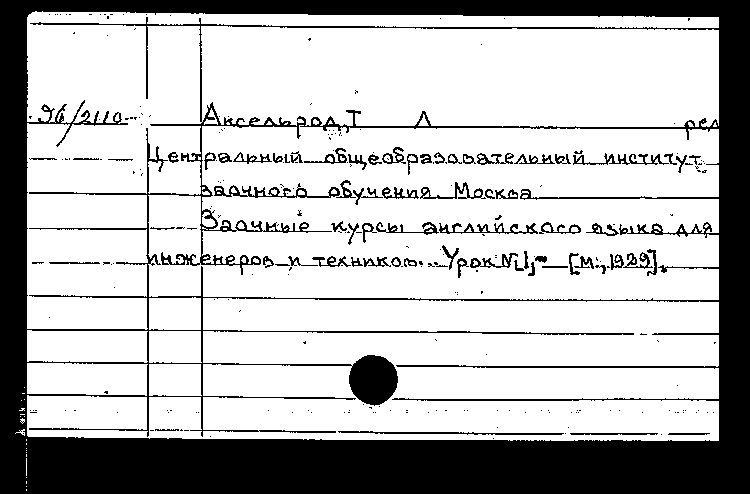 96/2110 Аксельрод, Т Л ред
Центральный общеобразовательный институт
заочного обучения. Москва
Заочные курсы английского языка для
инженеров и техников... Урок №1,- [М., 1929].